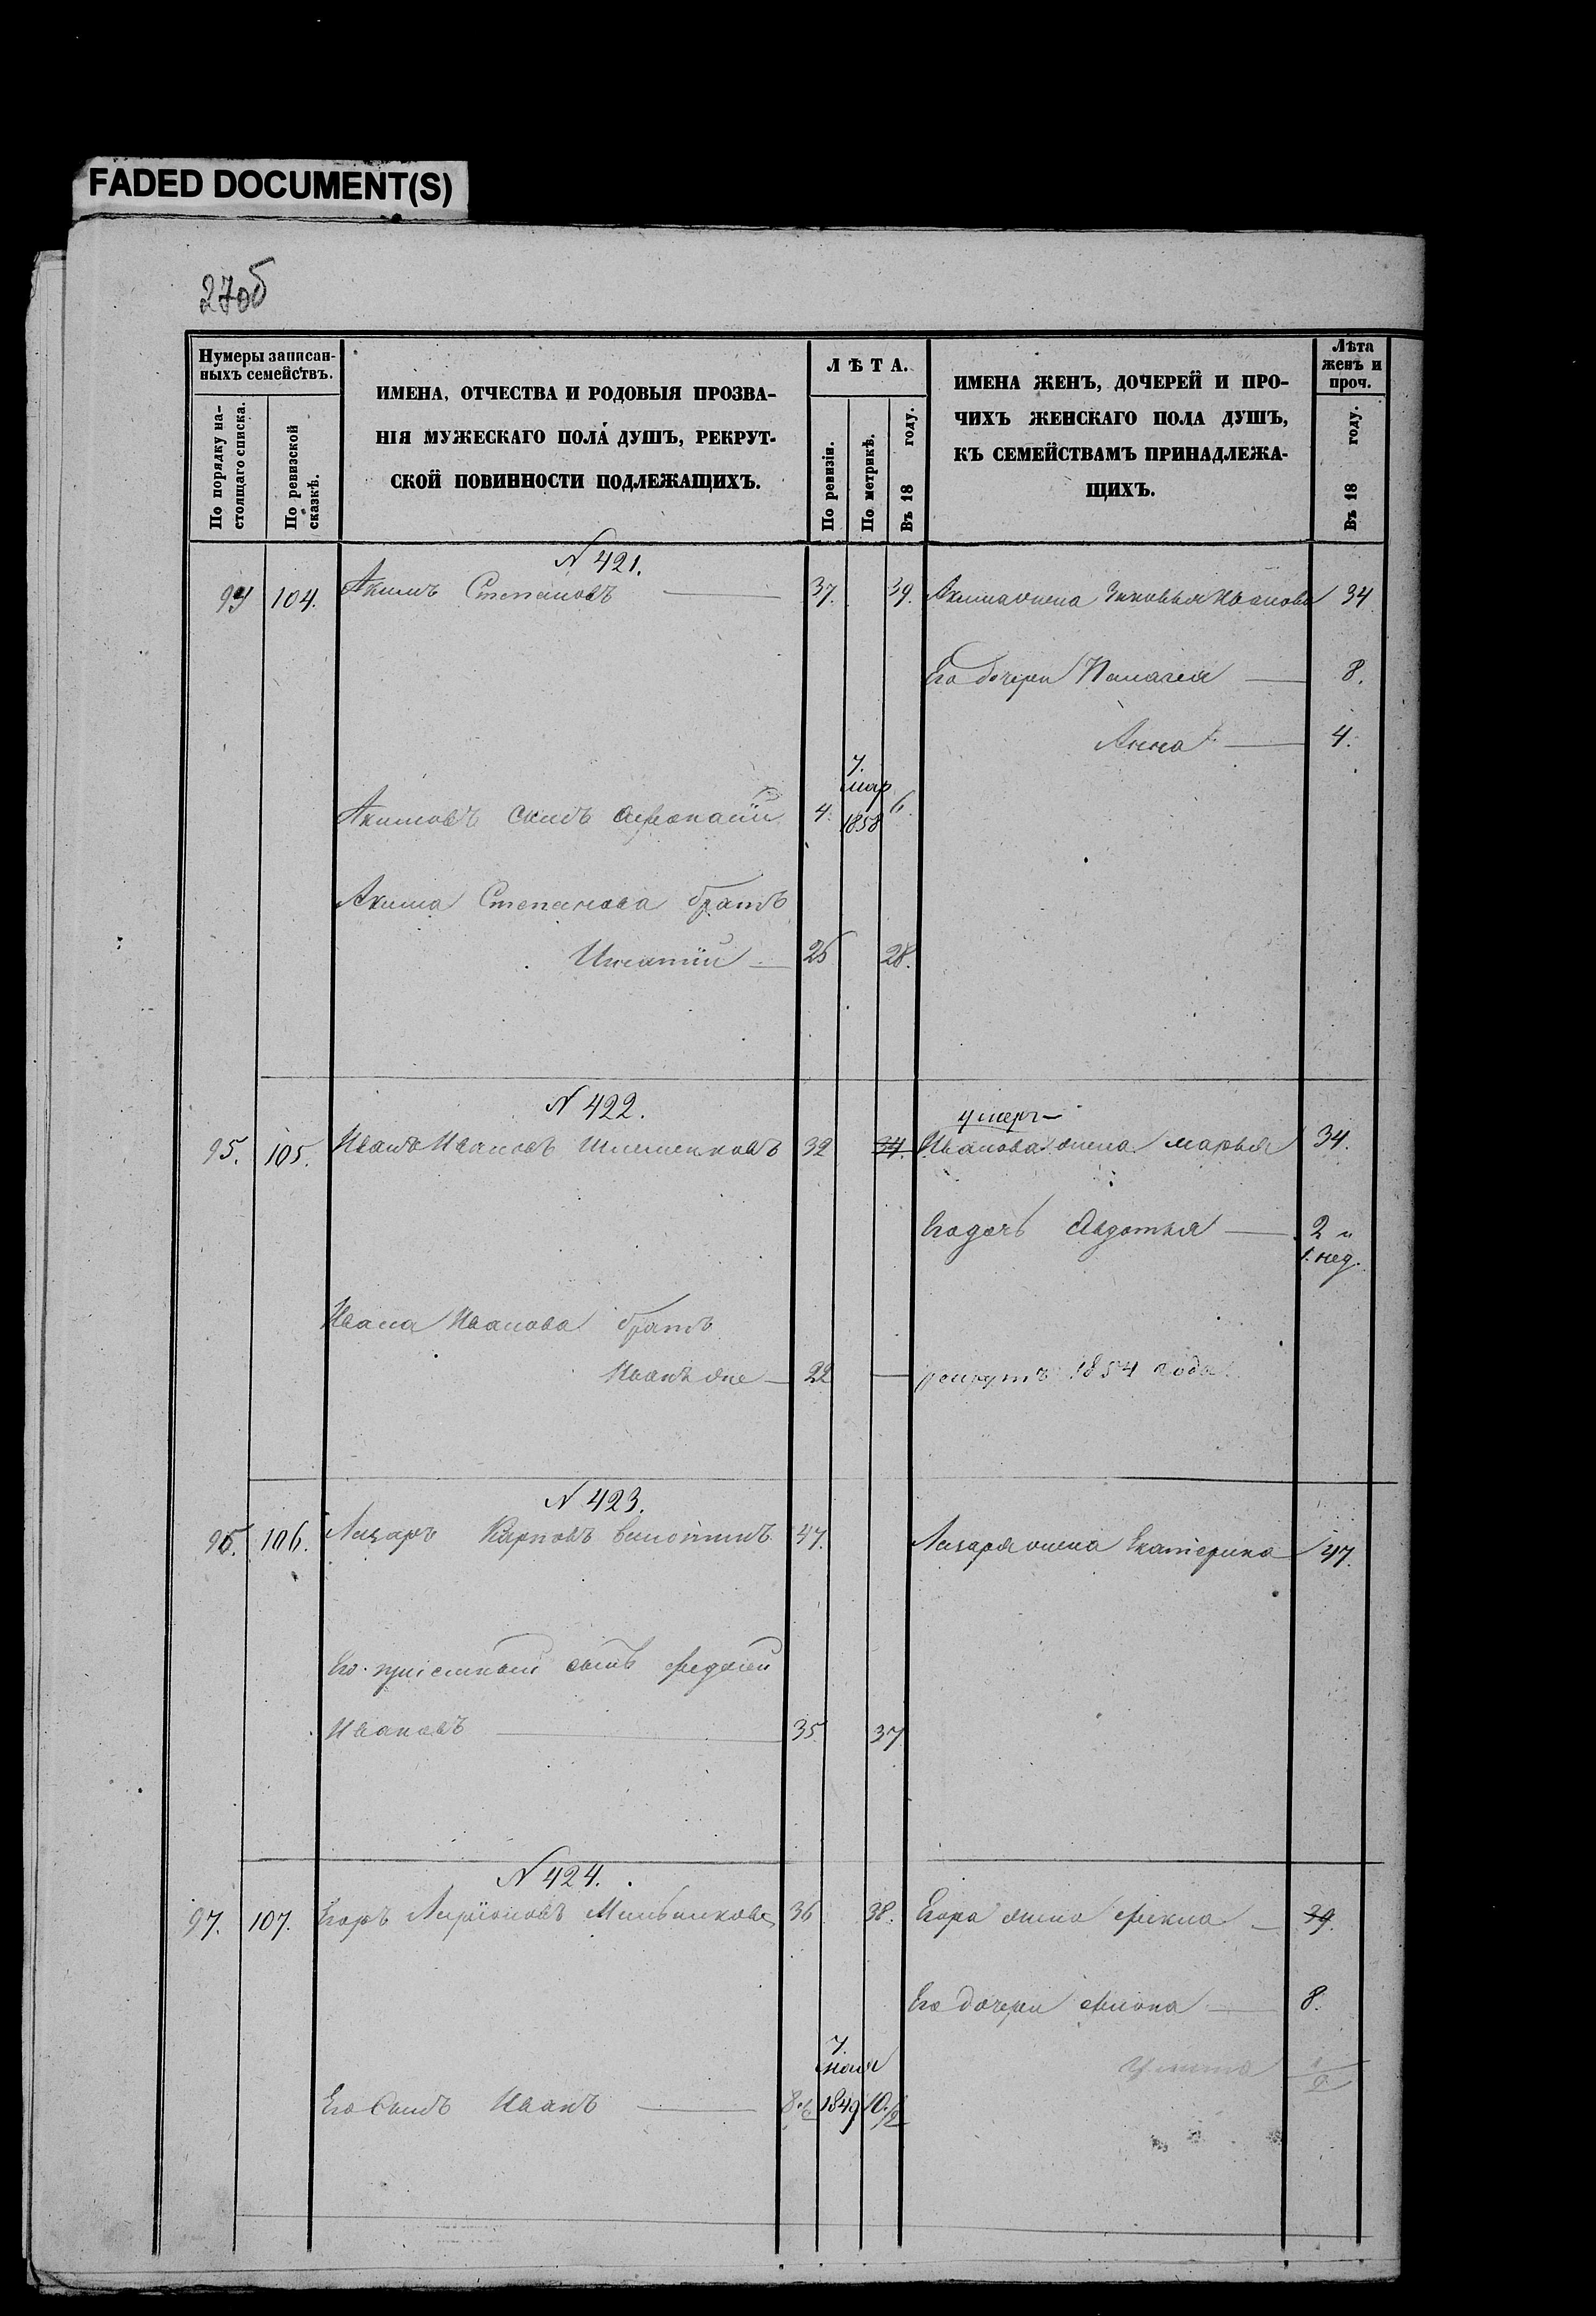 FADED DOCUMENT(S)
270б
Нумеры записан-
ныхъ семействъ.
По порядку на-
стоящаго списка.
По ревизской
сказкѣ.
ИМЕНА, ОТЧЕСТВА И РОДОВЫЯ ПРОЗВА-
НІЯ МУЖЕСКАГО ПОЛА ДУШЪ, РЕКРУТ-
СКОЙ ПОВИННОСТИ ПОДЛЕЖАЩИХЪ.
ЛѢТА.
По ревизіи.
По метрикѣ.
Въ 18 году.
ИМЕНА ЖЕНЪ, ДОЧЕРЕЙ И ПРО-
ЧИХЪ ЖЕНСКАГО ПОЛА ДУШЪ,
КЪ СЕМЕЙСТВАМЪ ПРИНАДЛЕЖА-
ЩИХЪ.
Лѣта
женъ и
проч.
Въ 18 году.
N 421.
94 104. Акимъ Степановъ 37. 39. Акима жена Зиновья Иванова 34
Его дочери Пелагея 8.
Анна 4.
7.
мар
Акимовъ сынъ Афонасій 4. 1858 6.
Акима Степанова братъ
Игнатій 25 28.
N 422.
умеръ
95. 105. Иванъ Ивановъ 32 34. Иванова жена Марья 34.
Его дочь Авдотья 2 и
1. нед.
Ивана Иванова братъ
Иванъ же 22 рекрутъ 1854 года.
N 423.
96. 106. Лазарь Карповъ 47. Лазаря жена Екатерина 47.
Его приемный сынъ Федосей
Ивановъ 35 37
N 424.
97. 107. Егоръ Ларіоновъ Мельниковъ 36 38. Егора жена Фекла 39.
Его дочери 8.
7.
мая
Его сынъ Иванъ 8 1/2 1849 10 1/2